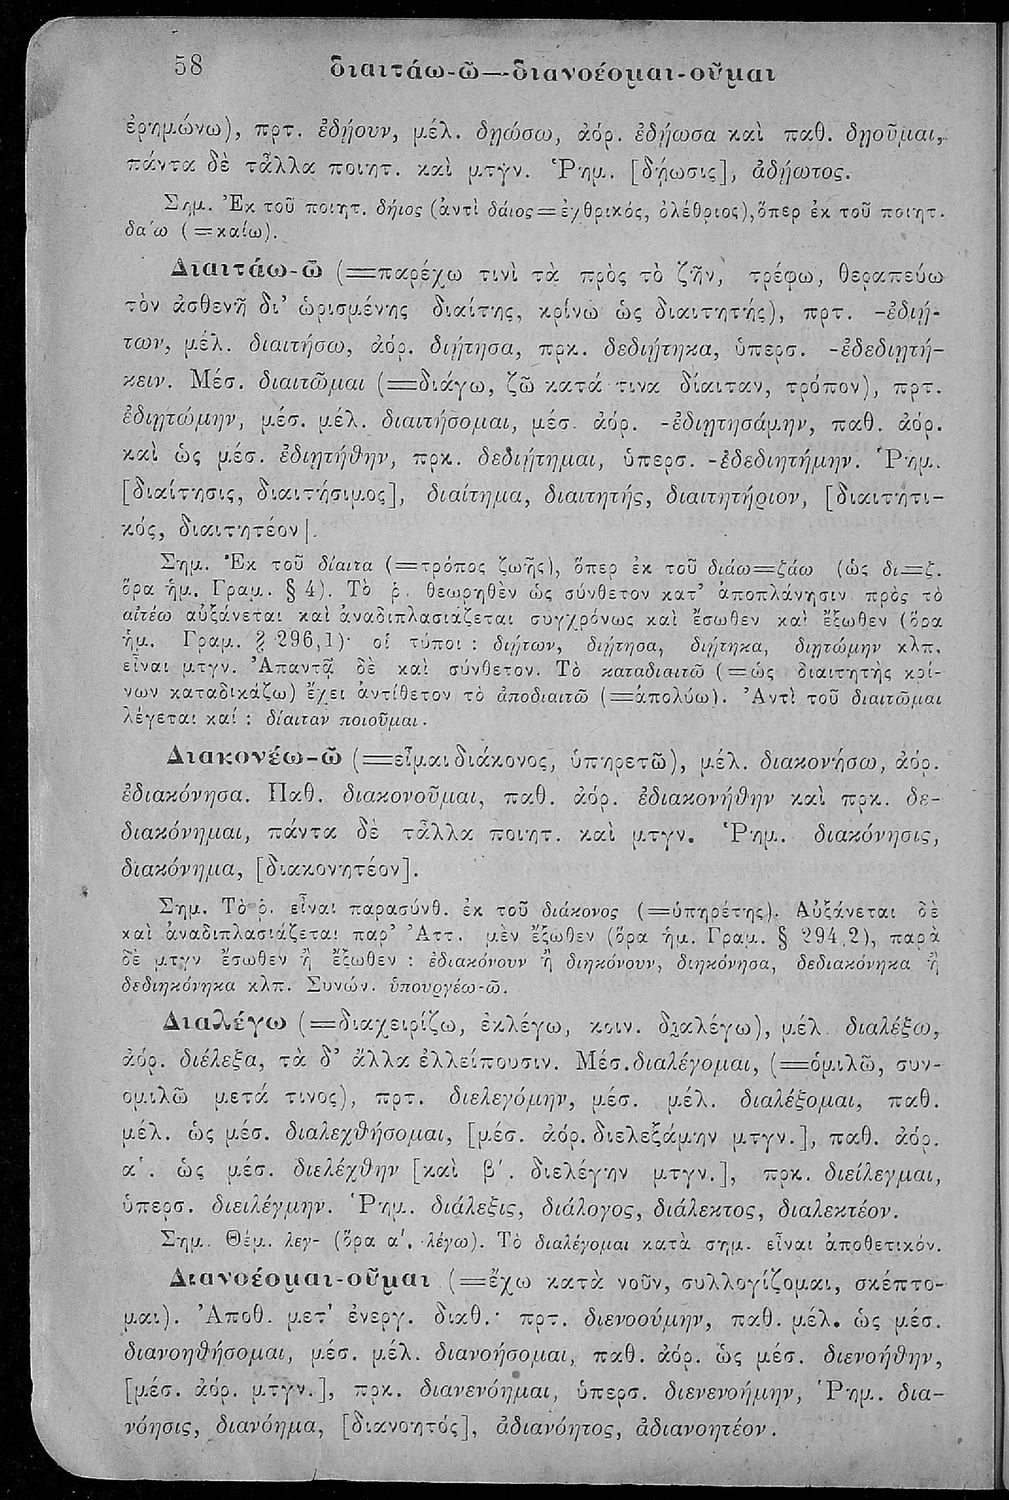 58 διαιτάω-ῶ—διανοέομαι-οῦμαι
ἐρημώνω), πρτ. ἐδῄουν, μέλ. δῃώσω, ἀόρ. ἐδῄωσα καὶ παθ. δῃοῦμαι,
πάντα δὲ τἆλλα ποιητ. καὶ μτγν. Ῥημ. [δήωσις], ἀδῄωτος.
Σημ. Ἐκ τοῦ ποιητ. δήιος (ἀντὶ δάιος=ἐχθρικός, ὀλέθριος), ὅπερ ἐκ τοῦ ποιητ.
δαίω (=καίω).
Διαιτάω-ῶ (=παρέχω τινὶ τὰ πρὸς τὸ ζῆν, τρέφω, θεραπεύω
τὸν ἀσθενῆ δι’ ὡρισμένης διαίτης, κρίνω ὡς διαιτητής), πρτ. -ἐδιῄ-
των, μέλ. διαιτήσω, ἀόρ. διῄτησα, πρκ. δεδιῄτηκα, ὑπερσ. -ἐδεδιῃτή-
κειν. Μέσ. διαιτῶμαι (=διάγω, ζῶ κατά τινα δίαιταν, τρόπον), πρτ.
ἐδιῃτώμην, μέσ. μέλ. διαιτήσομαι, μέσ. ἀόρ. -ἐδιῃτησάμην, παθ. ἀόρ.
καὶ ὡς μέσ. ἐδιῃτήθην, πρκ. δεδιῄτημαι, ὑπερσ. -ἐδεδιητήμην. Ῥημ.
[διαίτησις, διαιτήσιμος], διαίτημα, διαιτητής, διαιτητήριον, [διαιτητι-
κός, διαιτητέον].
Σημ. Ἐκ τοῦ δίαιτα (=τρόπος ζωῆς), ὅπερ ἐκ τοῦ διάω=ζάω (ὡς δι=ζ.
ὅρα ἡμ. Γραμ. § 4). Τὸ ῥ. θεωρηθὲν ὡς σύνθετον κατ’ ἀποπλάνησιν πρὸς τὸ
αἰτέω αὐξάνεται καὶ ἀναδιπλασιάζεται συγχρόνως καὶ ἔσωθεν καὶ ἔξωθεν (ὅρα
ἡμ. Γραμ. § 296,1)· οἱ τύποι : διῄτων, διῄτησα, διῄτηκα, διῃτώμην κλπ.
εἶναι μτγν. Ἀπαντᾷ δὲ καὶ σύνθετον. Τὸ καταδιαιτῶ (=ὡς διαιτητὴς κρί-
νων καταδικάζω) ἔχει ἀντίθετον τὸ ἀποδιαιτῶ (=ἀπολύω). Ἀντὶ τοῦ διαιτῶμαι
λέγεται καί : δίαιταν ποιοῦμαι.
Διακονέω-ῶ (=εἶμαι διάκονος, ὑπηρετῶ), μέλ. διακονήσω, ἀόρ.
ἐδιακόνησα. Παθ. διακονοῦμαι, παθ. ἀόρ. ἐδιακονήθην καὶ πρκ. δε-
διακόνημαι, πάντα δὲ τἆλλα ποιητ. καὶ μτγν. Ῥημ. διακόνησις,
διακόνημα, [διακονητέον].
Σημ. Τὸ ῥ. εἶναι παρασύνθ. ἐκ τοῦ διάκονος (=ὑπηρέτης). Αὐξάνεται δὲ
καὶ ἀναδιπλασιάζεται παρ’ Ἀττ. μὲν ἔξωθεν (ὅρα ἡμ. Γραμ. § 294,2), παρὰ
δὲ μτγν ἔσωθεν ἢ ἔξωθεν : ἐδιακόνουν ἢ διηκόνουν, διηκόνησα, δεδιακόνηκα ἢ
δεδιηκόνηκα κλπ. Συνών. ὑπουργέω-ῶ.
Διαλέγω (=διαχειρίζω, ἐκλέγω, κοιν. διαλέγω), μέλ. διαλέξω,
ἀόρ. διέλεξα, τὰ δ’ ἄλλα ἐλλείπουσιν. Μέσ. διαλέγομαι, (=ὁμιλῶ, συν-
ομιλῶ μετά τινος), πρτ. διελεγόμην, μέσ. μέλ. διαλέξομαι, παθ.
μέλ. ὡς μέσ. διαλεχθήσομαι, [μέσ. ἀόρ. διελεξάμην μτγν.], παθ. ἀόρ.
α΄. ὡς μέσ. διελέχθην [καὶ β΄. διελέγην μτγν.], πρκ. διείλεγμαι,
ὑπερσ. διειλέγμην. Ῥημ. διάλεξις, διάλογος, διάλεκτος, διαλεκτέον.
Σημ. Θέμ. λεγ- (ὅρα α΄. λέγω). Τὸ διαλέγομαι κατὰ σημ. εἶναι ἀποθετικόν.
Διανοέομαι-οῦμαι (=ἔχω κατὰ νοῦν, συλλογίζομαι, σκέπτο-
μαι). Ἀποθ. μετ’ ἐνεργ. διαθ.· πρτ. διενοούμην, παθ. μέλ. ὡς μέσ.
διανοηθήσομαι, μέσ. μέλ. διανοήσομαι, παθ. ἀόρ. ὡς μέσ. διενοήθην,
[μέσ. ἀόρ. μτγν.], πρκ. διανενόημαι, ὑπερσ. διενενοήμην, Ῥημ. δια-
νόησις, διανόημα, [διανοητός], ἀδιανόητος, ἀδιανοητέον.